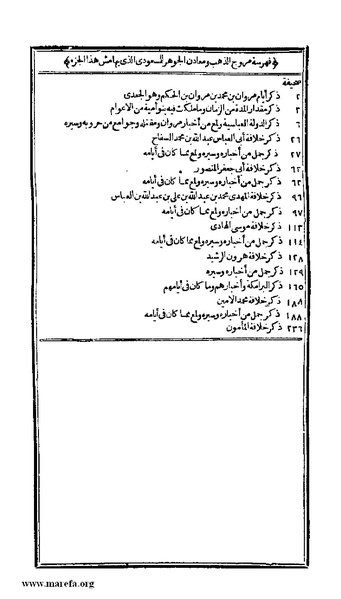 ﴿فهرسة مروج الذهب ومعادن الجوهر للمسعودى الذى بهامش هذا الجزء﴾
صحيفة
٢ ذكر أيام مروان بن محمد بن مروان بن الحكم وهو الجعدى
٣ ذكر مقدار المدة من الزمان وما ملكت فيه بنو أمية من الاعوام
٦ ذكر الدولة العباسية ولمع من أخبار مروان ومقتله وجوامع من حروبه وسيره
٢٦ ذكر خلافة أبى العباس عبد الله بن محمد السفاح
٢٧ ذكر جمل من أخباره وسيره ولمع مما كان فى أيامه
٦٢ ذكر خلافة أبى جعفر المنصور
٦٣ ذكر جمل من أخباره وسيره ولمع مما كان فى أيامه
٩٦ ذكر خلافة المهدى محمد بن عبد الله بن محمد بن على بن عبد الله بن العباس
٩٧ ذكر جمل من أخباره ولمع مما كان فى أيامه
١١٣ ذكر خلافة موسى الهادى
١١٤ ذكر جمل من أخباره وسيره ولمع مما كان فى أيامه
١٢٨ ذكر خلافة هرون الرشيد
١٢٩ ذكر جمل من أخباره وسيره
١٦٥ ذكر البرامكة وأخبارهم وما كان فى أيامهم
١٨٨ ذكر خلافة محمد الامين
١٨٨ ذكر جمل من أخباره وسيره ولمع مما كان فى أيامه
٢٣٦ ذكر خلافة المأمون
www.marefa.org